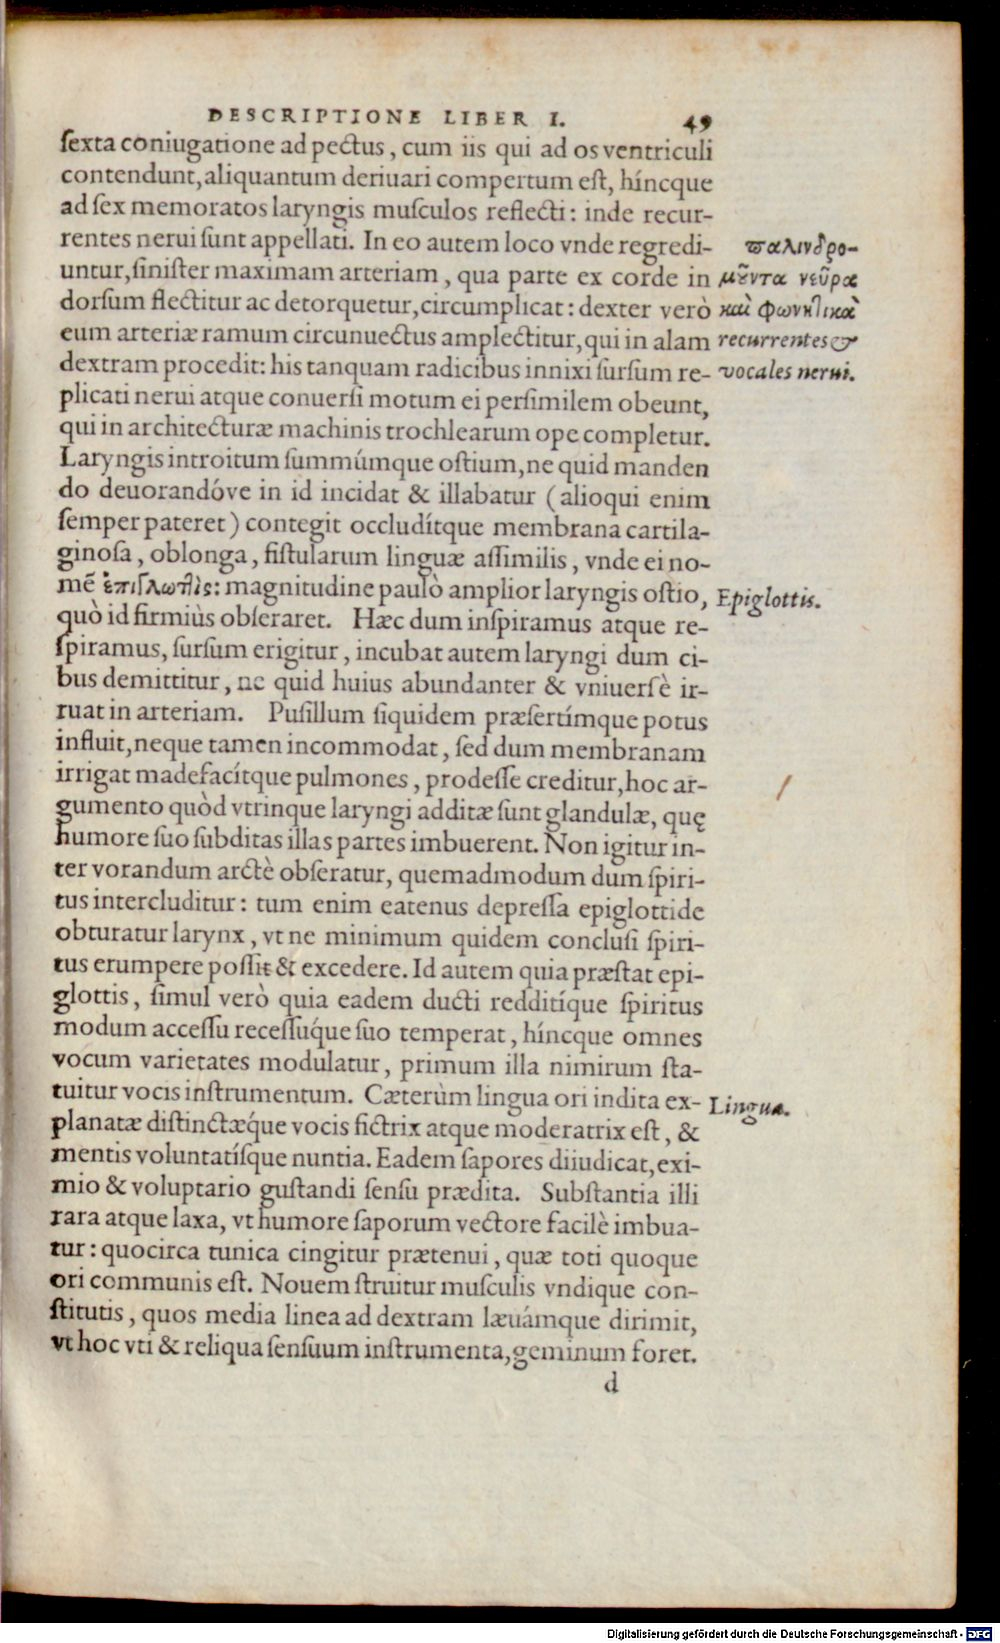 DESCRIPTIONE LIBER I. 49
ſexta coniugatione ad pectus, cum iis qui ad os ventriculi
contendunt, aliquantum deriuari compertum eſt, híncque
ad ſex memoratos laryngis muſculos reflecti: inde recur-
rentes nerui ſunt appellati. In eo autem loco vnde regredi-
untur, ſiniſter maximam arteriam, qua parte ex corde in
dorſum flectitur ac detorquetur, circumplicat: dexter verò
eum arteriæ ramum circunuectus amplectitur, qui in alam
dextram procedit: his tanquam radicibus innixi ſurſum re-
plicati nerui atque conuerſi motum ei perſimilem obeunt,
qui in architecturæ machinis trochlearum ope completur.
Laryngis introitum ſummúmque oſtium, ne quid manden
do deuorandóve in id incidat & illabatur (alioqui enim
ſemper pateret) contegit occludítque membrana cartila-
ginoſa, oblonga, fiſtularum linguæ aſſimilis, vnde ei no-
mē ἐπιγλωττὶς: magnitudine paulò amplior laryngis oſtio,
quò id firmiùs obſeraret. Hæc dum inſpiramus atque re-
ſpiramus, ſurſum erigitur, incubat autem laryngi dum ci-
bus demittitur, ne quid huius abundanter & vniuerſè ir-
ruat in arteriam. Puſillum ſiquidem præſertímque potus
influit, neque tamen incommodat, ſed dum membranam
irrigat madefacítque pulmones, prodeſſe creditur, hoc ar-
gumento quòd vtrinque laryngi additæ ſunt glandulæ, quę
humore ſuo ſubditas illas partes imbuerent. Non igitur in-
ter vorandum arctè obſeratur, quemadmodum dum ſpiri-
tus intercluditur: tum enim eatenus depreſſa epiglottide
obturatur larynx, vt ne minimum quidem concluſi ſpiri-
tus erumpere poſſit & excedere. Id autem quia præſtat epi-
glottis, ſimul verò quia eadem ducti redditíque ſpiritus
modum acceſſu receſſuque ſuo temperat, híncque omnes
vocum varietates modulatur, primum illa nimirum ſta-
tuitur vocis inſtrumentum. Cæterùm lingua ori indita ex-
planatæ diſtinctæque vocis fictrix atque moderatrix eſt, &
mentis voluntatíſque nuntia. Eadem ſapores diiudicat, exi-
mio & voluptario guſtandi ſenſu prædita. Subſtantia illi
rara atque laxa, vt humore ſaporum vectore facilè imbua-
tur: quocirca tunica cingitur prætenui, quæ toti quoque
ori communis eſt. Nouem ſtruitur muſculis vndique con-
ſtitutis, quos media linea ad dextram læuámque dirimit,
vt hoc vti & reliqua ſenſuum inſtrumenta, geminum foret.
d
παλινδρο-
μοῦντα νεῦρα
καὶ φωνητικὰ
recurrentes &
vocales nerui.
Epiglottis.
Lingua.
Digitalisierung gefördert durch die Deutsche Forschungsgemeinschaft - DFG